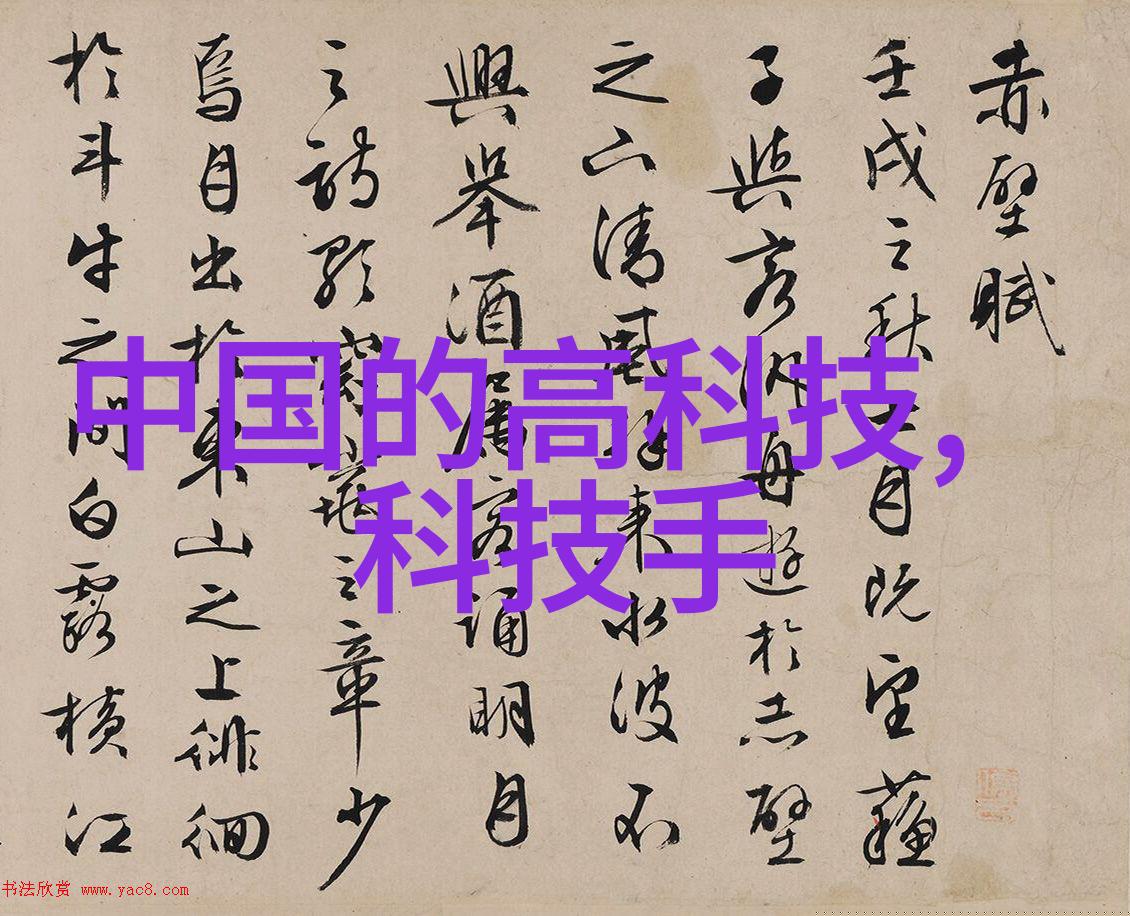 赤壁賦
壬戌之秋七月既望蘇
子與客泛舟遊於赤壁
之下清風徐來水波不
興舉酒屬客誦明月
之詩歌窈窕之章少
焉月出於東山之上徘徊
於斗牛之間白露橫江
中国的高科技,
科技手
书法欣赏 www.yac8.com